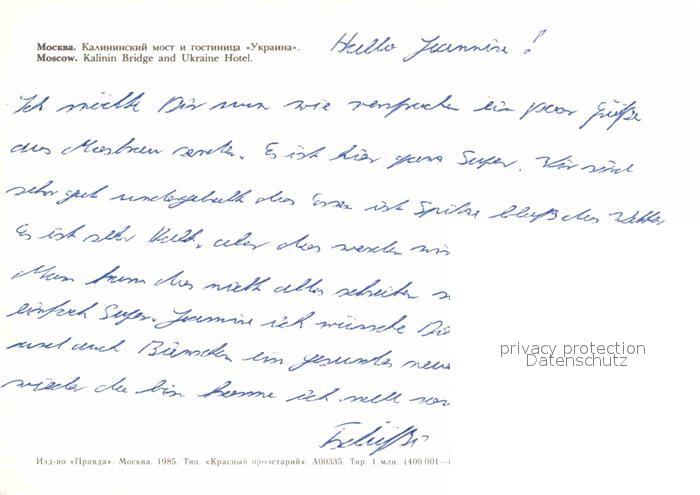 Москва. Калининский мост и гостиница «Украина».
Moscow. Kalinin Bridge and Ukraine Hotel.
Hallo Jeannine!
Ich möchte Dir nun wie versprochen ein paar Grüße
aus Moskau senden. Es ist hier ganz Super. Wir sind
sehr gut untergebracht das Essen ist Spitze bloß das Wetter
Es ist sehr Kalt, aber das werden wir
Man kann das nicht alles schreiben
einfach Super. Jeannine ich wünsche Dir
und auch ein gesundes neues
wieder da bin komme ich mal
Tschüßi
privacy protection
Datenschutz
Изд-во «Правда». Москва. 1985. Тип. «Красный пролетарий». А00335. Тир. 1 млн. (400 001—